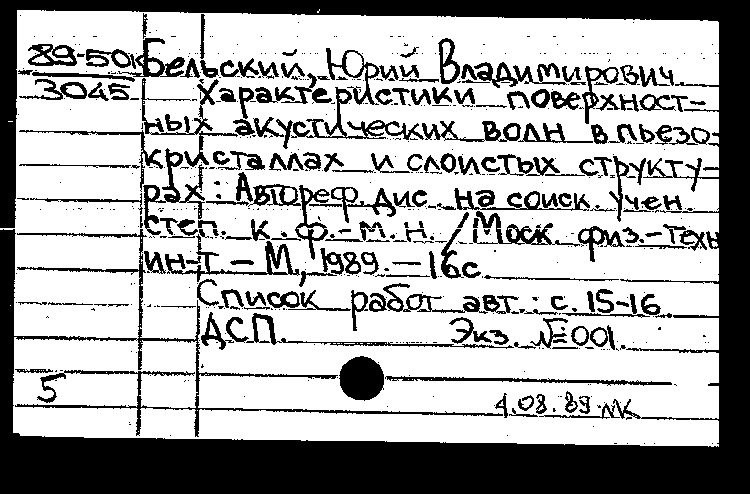 89-50к Бельский, Юрий Владимирович.
3045 Характеристики поверхност-
ных акустических волн в пьезо-
кристаллах и слоистых структу-
рах: Автореф. дис. на соиск. учен.
степ. к. ф.-м. н. / Моск. физ.-техн
ин-т. - М., 1989. - 16с.
Список работ авт.: с. 15-16.
ДСП. Экз. №001.
5
4.08.89